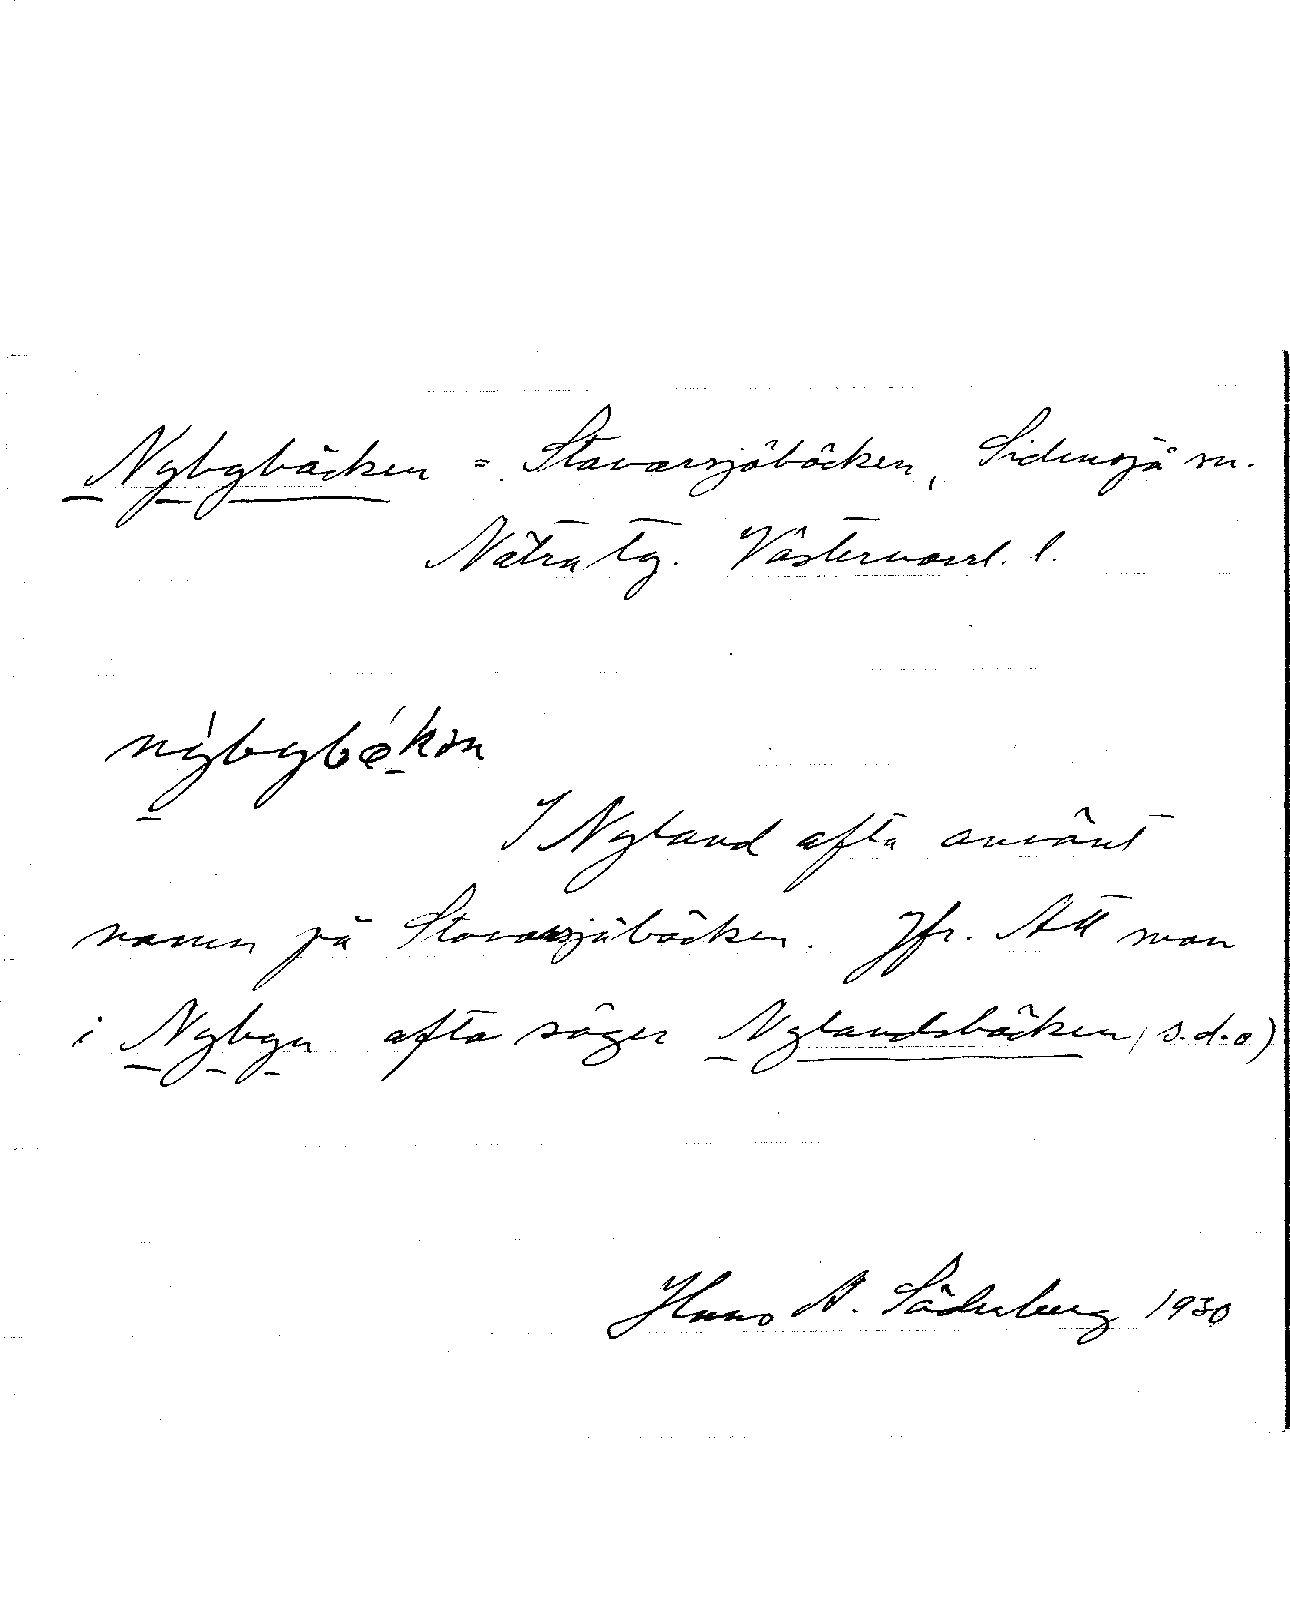 Nybybäcken = Stavarsjöbäcken, Sidensjö sn.
Nätra tg. Västernorrl. l.
nýbybǿkən
I Nyland ofta använt
namn på Stavarsjöbäcken. Jfr. Att man
i Nybyn ofta säger Nylandsbäcken, s.d.o)
Hans A. Söderberg 1930